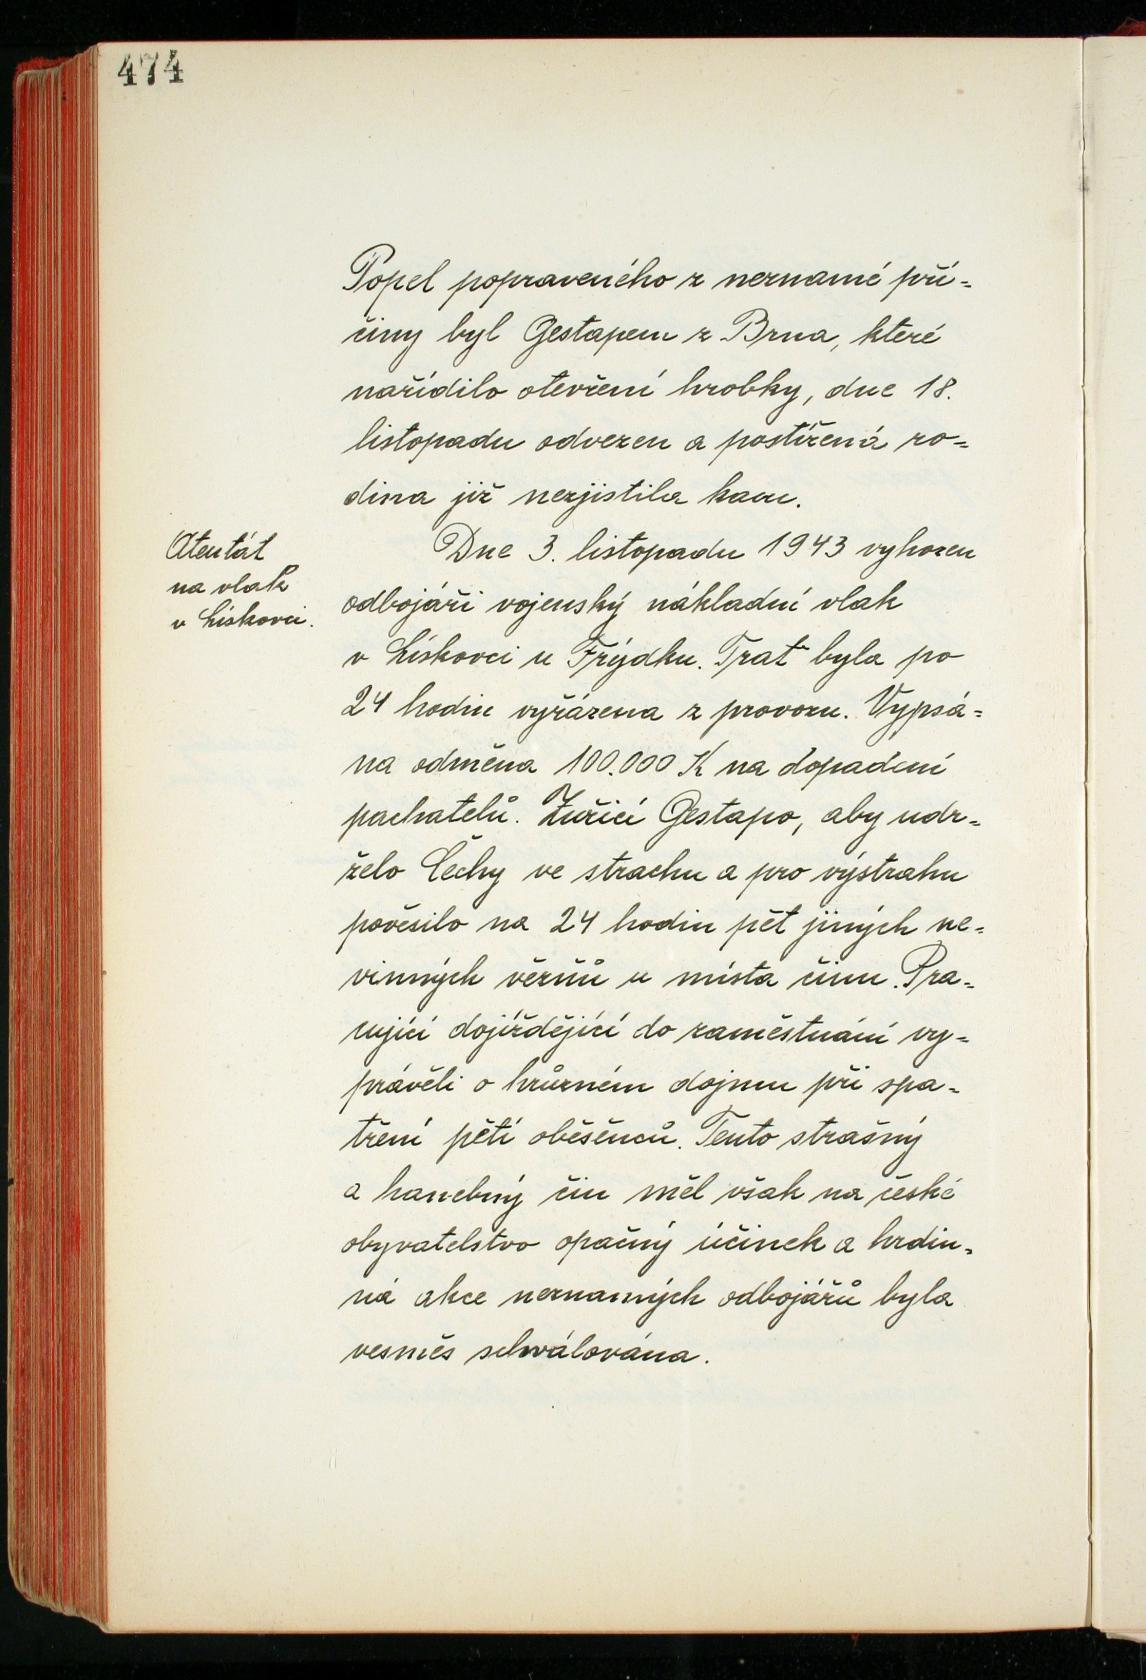 474
Popel popraveného z neznámé pří=
činy byl Gestapem z Brna, které
nařídilo otevření hrobky, dne 18.
listopadu odvezen a postižená ro=
dina již nezjistila kam.
Atentát
na vlak
v Lískovci.
Dne 3. listopadu 1943 vyhozen
odbojáři vojenský nákladní vlak
v Lískovci u Frýdku. Trať byla po
24 hodin vyřázena z provozu. Vypsá=
na odměna 100.000 K na dopadení
pachatelů. Zuřící Gestapo, aby udr=
želo Čechy ve strachu a pro výstrahu
pověsilo na 24 hodin pět jiných ne=
vinných vězňů u místa činu. Pra=
cující dojíždějící do zaměstnání vy=
právěli o hrůzném dojmu při spa=
tření pěti oběšenců. Tento strašný
a hanebný čin měl však na české
obyvatelstvo opačný účinek a hrdin=
ná akce neznámých odbojářů byla
vesměs schvalována.